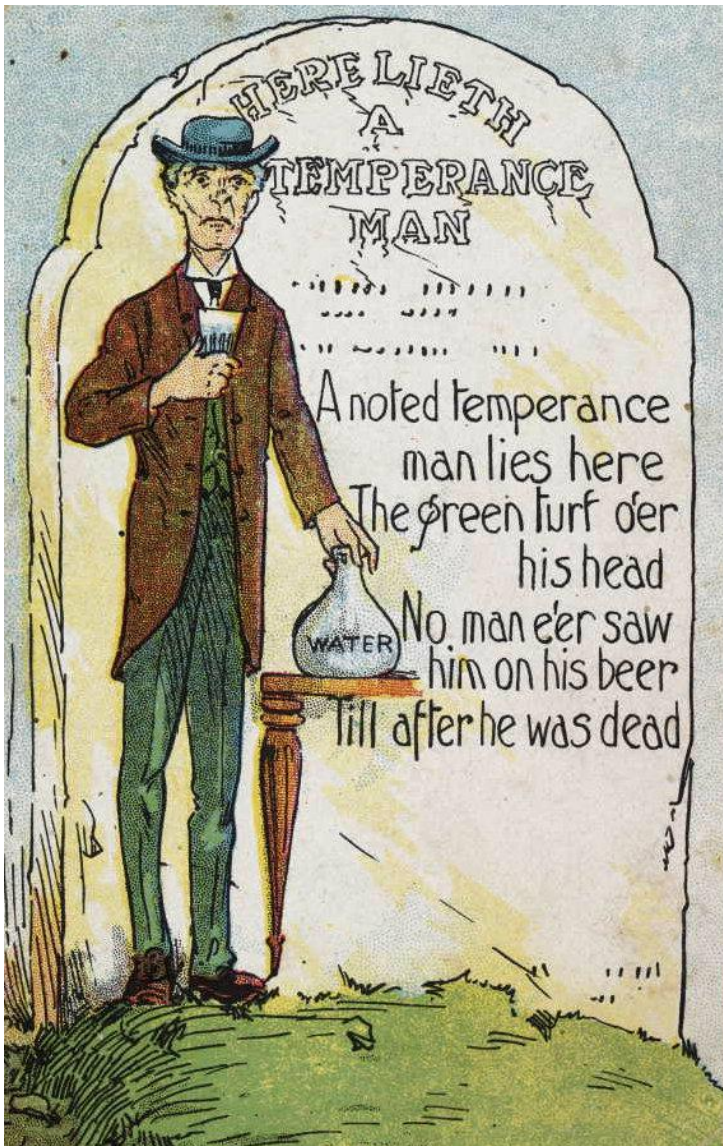 HERE LIETH
A
TEMPERANCE
MAN
A noted temperance
man lies here
The green turf o'er
his head
No man e'er saw
him on his beer
Till after he was dead
WATER